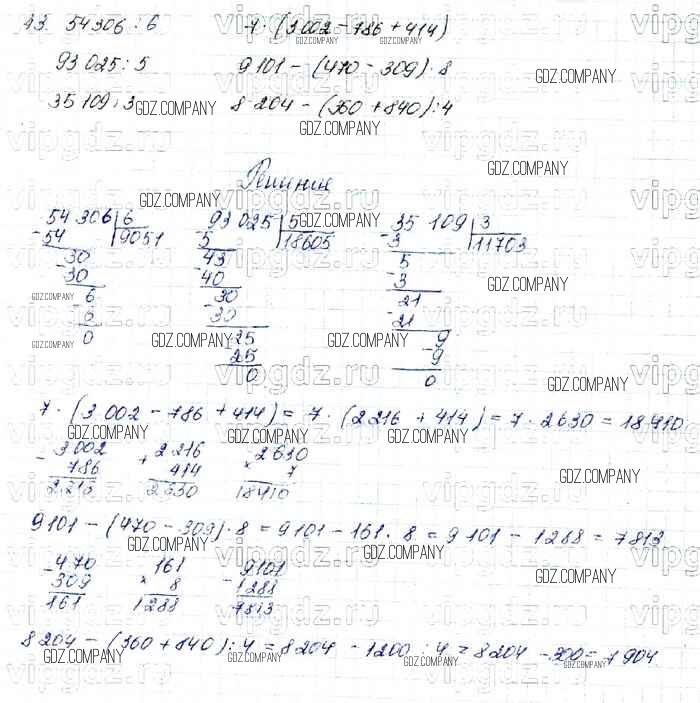 13. 54306 : 6 7 · (3 002 - 786 + 414)
93 025 : 5 9101 - (470 - 309) · 8
35 109 : 3 8 204 - (360 + 840) : 4
Решение
54 306 | 6 93 025 | 5 35 109 | 3
- 54 9051 - 5 18605 - 3 11703
30 43 5
- 30 - 40 - 3
6 30 21
- 6 - 30 - 21
0 25 9
- 25 - 9
0 0
7 · (3 002 - 786 + 414) = 7 · (2 216 + 414) = 7 · 2630 = 18410
- 3002 + 2216 × 2630
786 414 7
2216 2630 18410
9101 - (470 - 309) · 8 = 9101 - 161 · 8 = 9 101 - 1288 = 7813
- 470 × 161 - 9101
309 8 1288
161 1288 7813
8 204 - (360 + 840) : 4 = 8204 - 1200 : 4 = 8204 - 300 = 7904
GDZ.COMPANY
vipgdz.ru